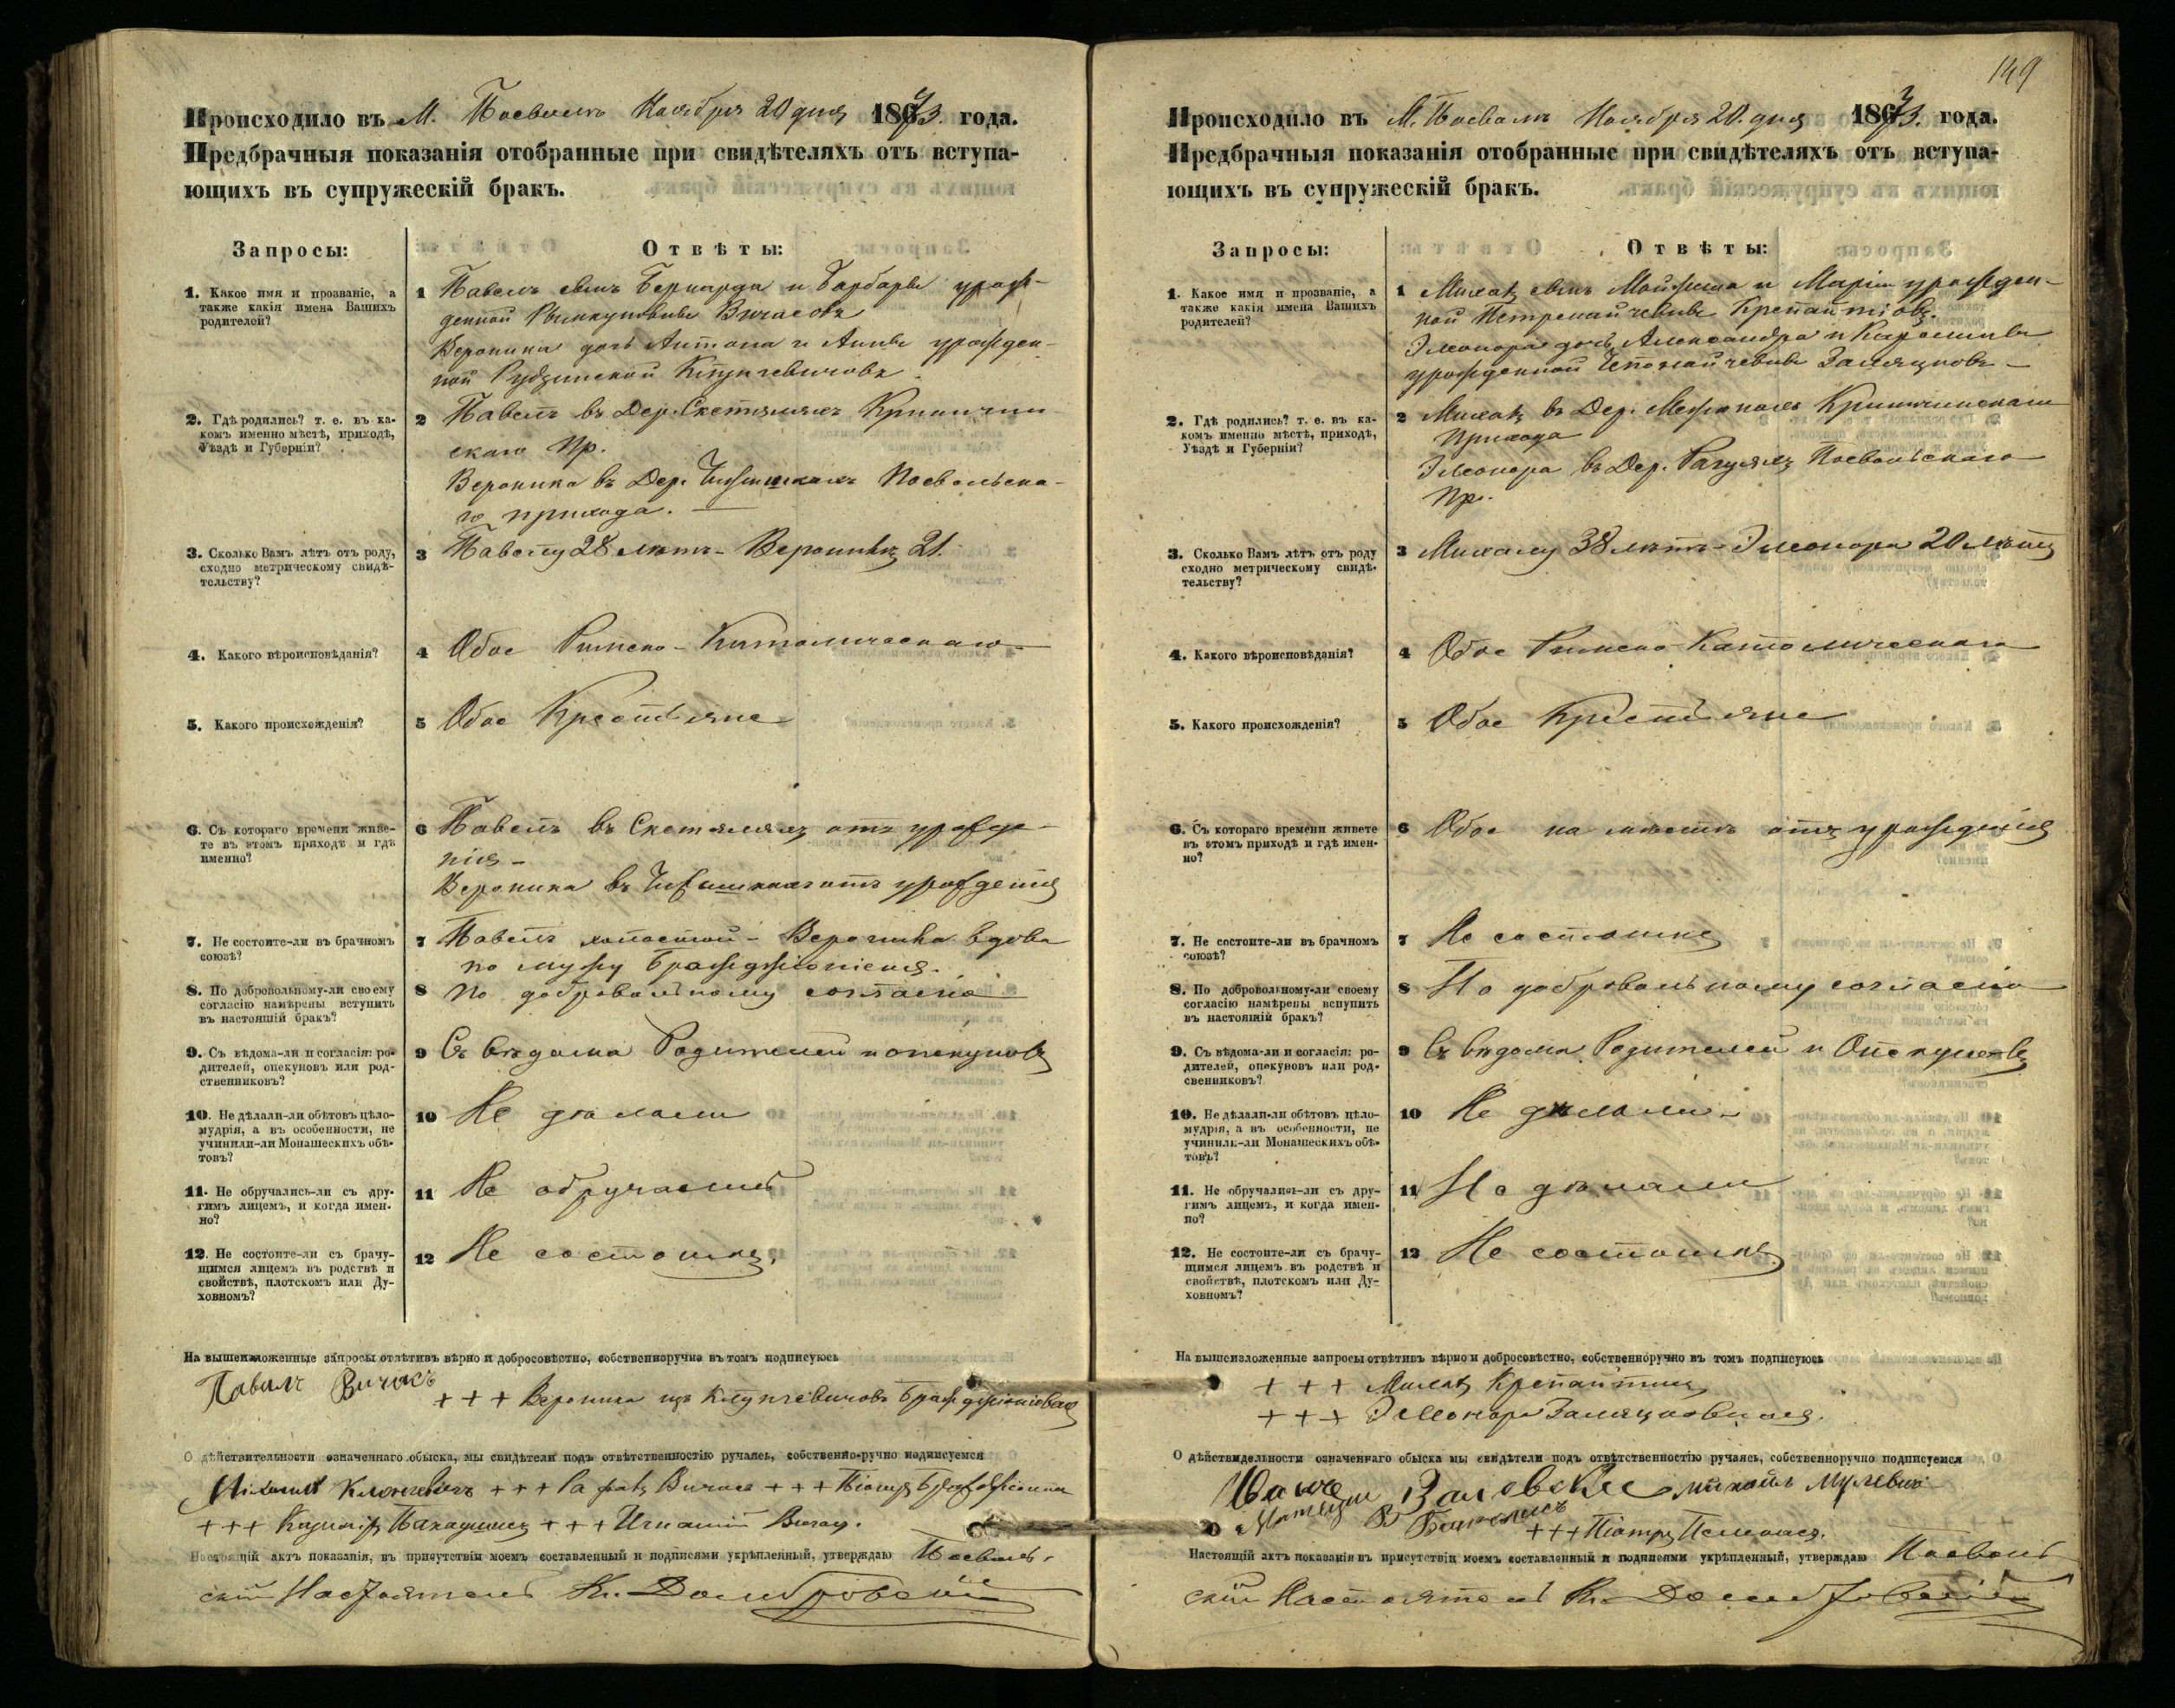 Происходило въ М. Посволѣ Ноября 20 дня 1873. года.
Предбрачныя показанія отобранные при свидѣтеляхъ отъ вступа-
ющихъ въ супружескій бракъ.
Запросы:
Отвѣты:
1. Какое имя и прозваніе, а
также какія имена Вашихъ
родителей?
1 Павелъ сынъ Бернарда и Барбары урож-
денной Вичасовъ
Вероника дочь Антона и Анны урожден-
ной Рудзинской
2. Гдѣ родились? т. е. въ ка-
комъ именно мѣстѣ, приходѣ,
Уѣздѣ и Губерніи?
2 Павелъ въ Дер. Скетялахъ Кринчин
скаго Пр.
Вероника въ Дер. Посвольска-
го прихода.
3. Сколько Вамъ лѣтъ отъ роду,
сходно метрическому свидѣ-
тельству?
3 Павелу 28 лѣтъ - Вероникѣ 21.
4. Какого вѣроисповѣданія?
4 Обое Римско-Католическаго
5. Какого происхожденія?
5 Обое Крестьяне
6. Съ котораго времени живе-
те въ этомъ приходѣ и гдѣ
именно?
6 Павелъ въ Скетялялъ отъ урожде-
нія -
Вероника въ отъ урожденія
7. Не состоите-ли въ брачномъ
союзѣ?
7 Павелъ холостой - Вероника вдова
по мужу
8. По добровольному-ли своему
согласію намѣрены вступить
въ настоящій бракъ?
8 По добровольному согласію
9. Съ вѣдома-ли и согласія: ро-
дителей, опекуновъ или род-
ственниковъ?
9 Съ вѣдома Родителей и опекуновъ
10. Не дѣлали-ли обѣтовъ цѣло-
мудрія, а въ особенности, не
учинили-ли Монашескихъ обѣ-
товъ?
10 Не дѣлали
11. Не обручались-ли съ дру-
гимъ лицемъ, и когда имен-
но?
11 Не обручались
12. Не состоите-ли съ брачу-
щимся лицемъ въ родствѣ и
свойствѣ, плотскомъ или Ду-
ховномъ?
12 Не состоимъ.
На вышеизложенные запросы отвѣтивъ вѣрно и добросовѣстно, собственноручно въ томъ подписуюсь
Павелъ Вичасъ
+ + + Вероника изъ
О дѣйствительности означеннаго обыска, мы свидѣтели подъ отвѣтственностію ручаясь, собственно-ручно подписуемся
+ + + Вичас + + +
+ + + Казиміръ + + + Игнатій Вичас.
Настоящій актъ показанія, въ присутствіи моемъ составленный и подписями укрѣпленный, утверждаю Посволь-
скій Настоятель Кс. Домбровскій
149
Происходило въ М. Посволѣ Ноября 20. дня 1873. года.
Предбрачныя показанія отобранные при свидѣтеляхъ отъ вступа-
ющихъ въ супружескій бракъ.
Запросы:
Отвѣты:
1. Какое имя и прозваніе, а
также какія имена Вашихъ
родителей?
1 Михаилъ сынъ и Маріи урожден-
ной
Элеонора дочь Александра и Каролины
урожденной
2. Гдѣ родились? т. е. въ ка-
комъ именно мѣстѣ, приходѣ,
Уѣздѣ и Губерніи?
2 въ Дер. Кринчинскаго
Прихода
Элеонора въ Дер. Посвольскаго
Пр.
3. Сколько Вамъ лѣтъ отъ роду
сходно метрическому свидѣ-
тельству?
3 38 лѣтъ - Элеонора 20 лѣтъ
4. Какого вѣроисповѣданія?
4 Обое Римско Католическаго
5. Какого происхожденія?
5 Обое Крестьяне
6. Съ котораго времени живете
въ этомъ приходѣ и гдѣ имен-
но?
6 Обое на мѣстѣ отъ урожденія
7. Не состоите-ли въ брачномъ
союзѣ?
7 Не состоимъ
8. По добровольному-ли своему
согласію намѣрены вспупить
въ настоящій бракъ?
8 По добровольному согласію
9. Съ вѣдома-ли и согласія: ро-
дителей, опекуновъ или род-
свенниковъ?
9 Съ вѣдома Родителей и Опекуновъ
10. Не дѣлали-ли обѣтовъ цѣло-
мудрія, а въ особенности, не
учинили-ли Монашескихъ обѣ-
товъ?
10 Не дѣлали -
11. Не обручались-ли съ дру-
гимъ лицемъ, и когда имен-
но?
11 Не дѣлали
12. Не состоите-ли съ брачу-
щимся лицемъ въ родствѣ и
свойствѣ, плотскомъ или Ду-
ховномъ?
12 Не состоимъ.
На вышеизложенные запросы отвѣтивъ вѣрно и добросовѣстно, собственноручно въ томъ подписуюсь
+ + +
+ + + Элеонора
О дѣйствидельности означеннаго обыска мы свидѣтели подъ отвѣтственностію ручаясь, собственноручно подписуемся
+ + + Піотръ
Настоящій актъ показанія въ присутствіи моемъ составленный и подписями укрѣпленный, утверждаю Посволь
скій Настоятель Кс. Домбровскій